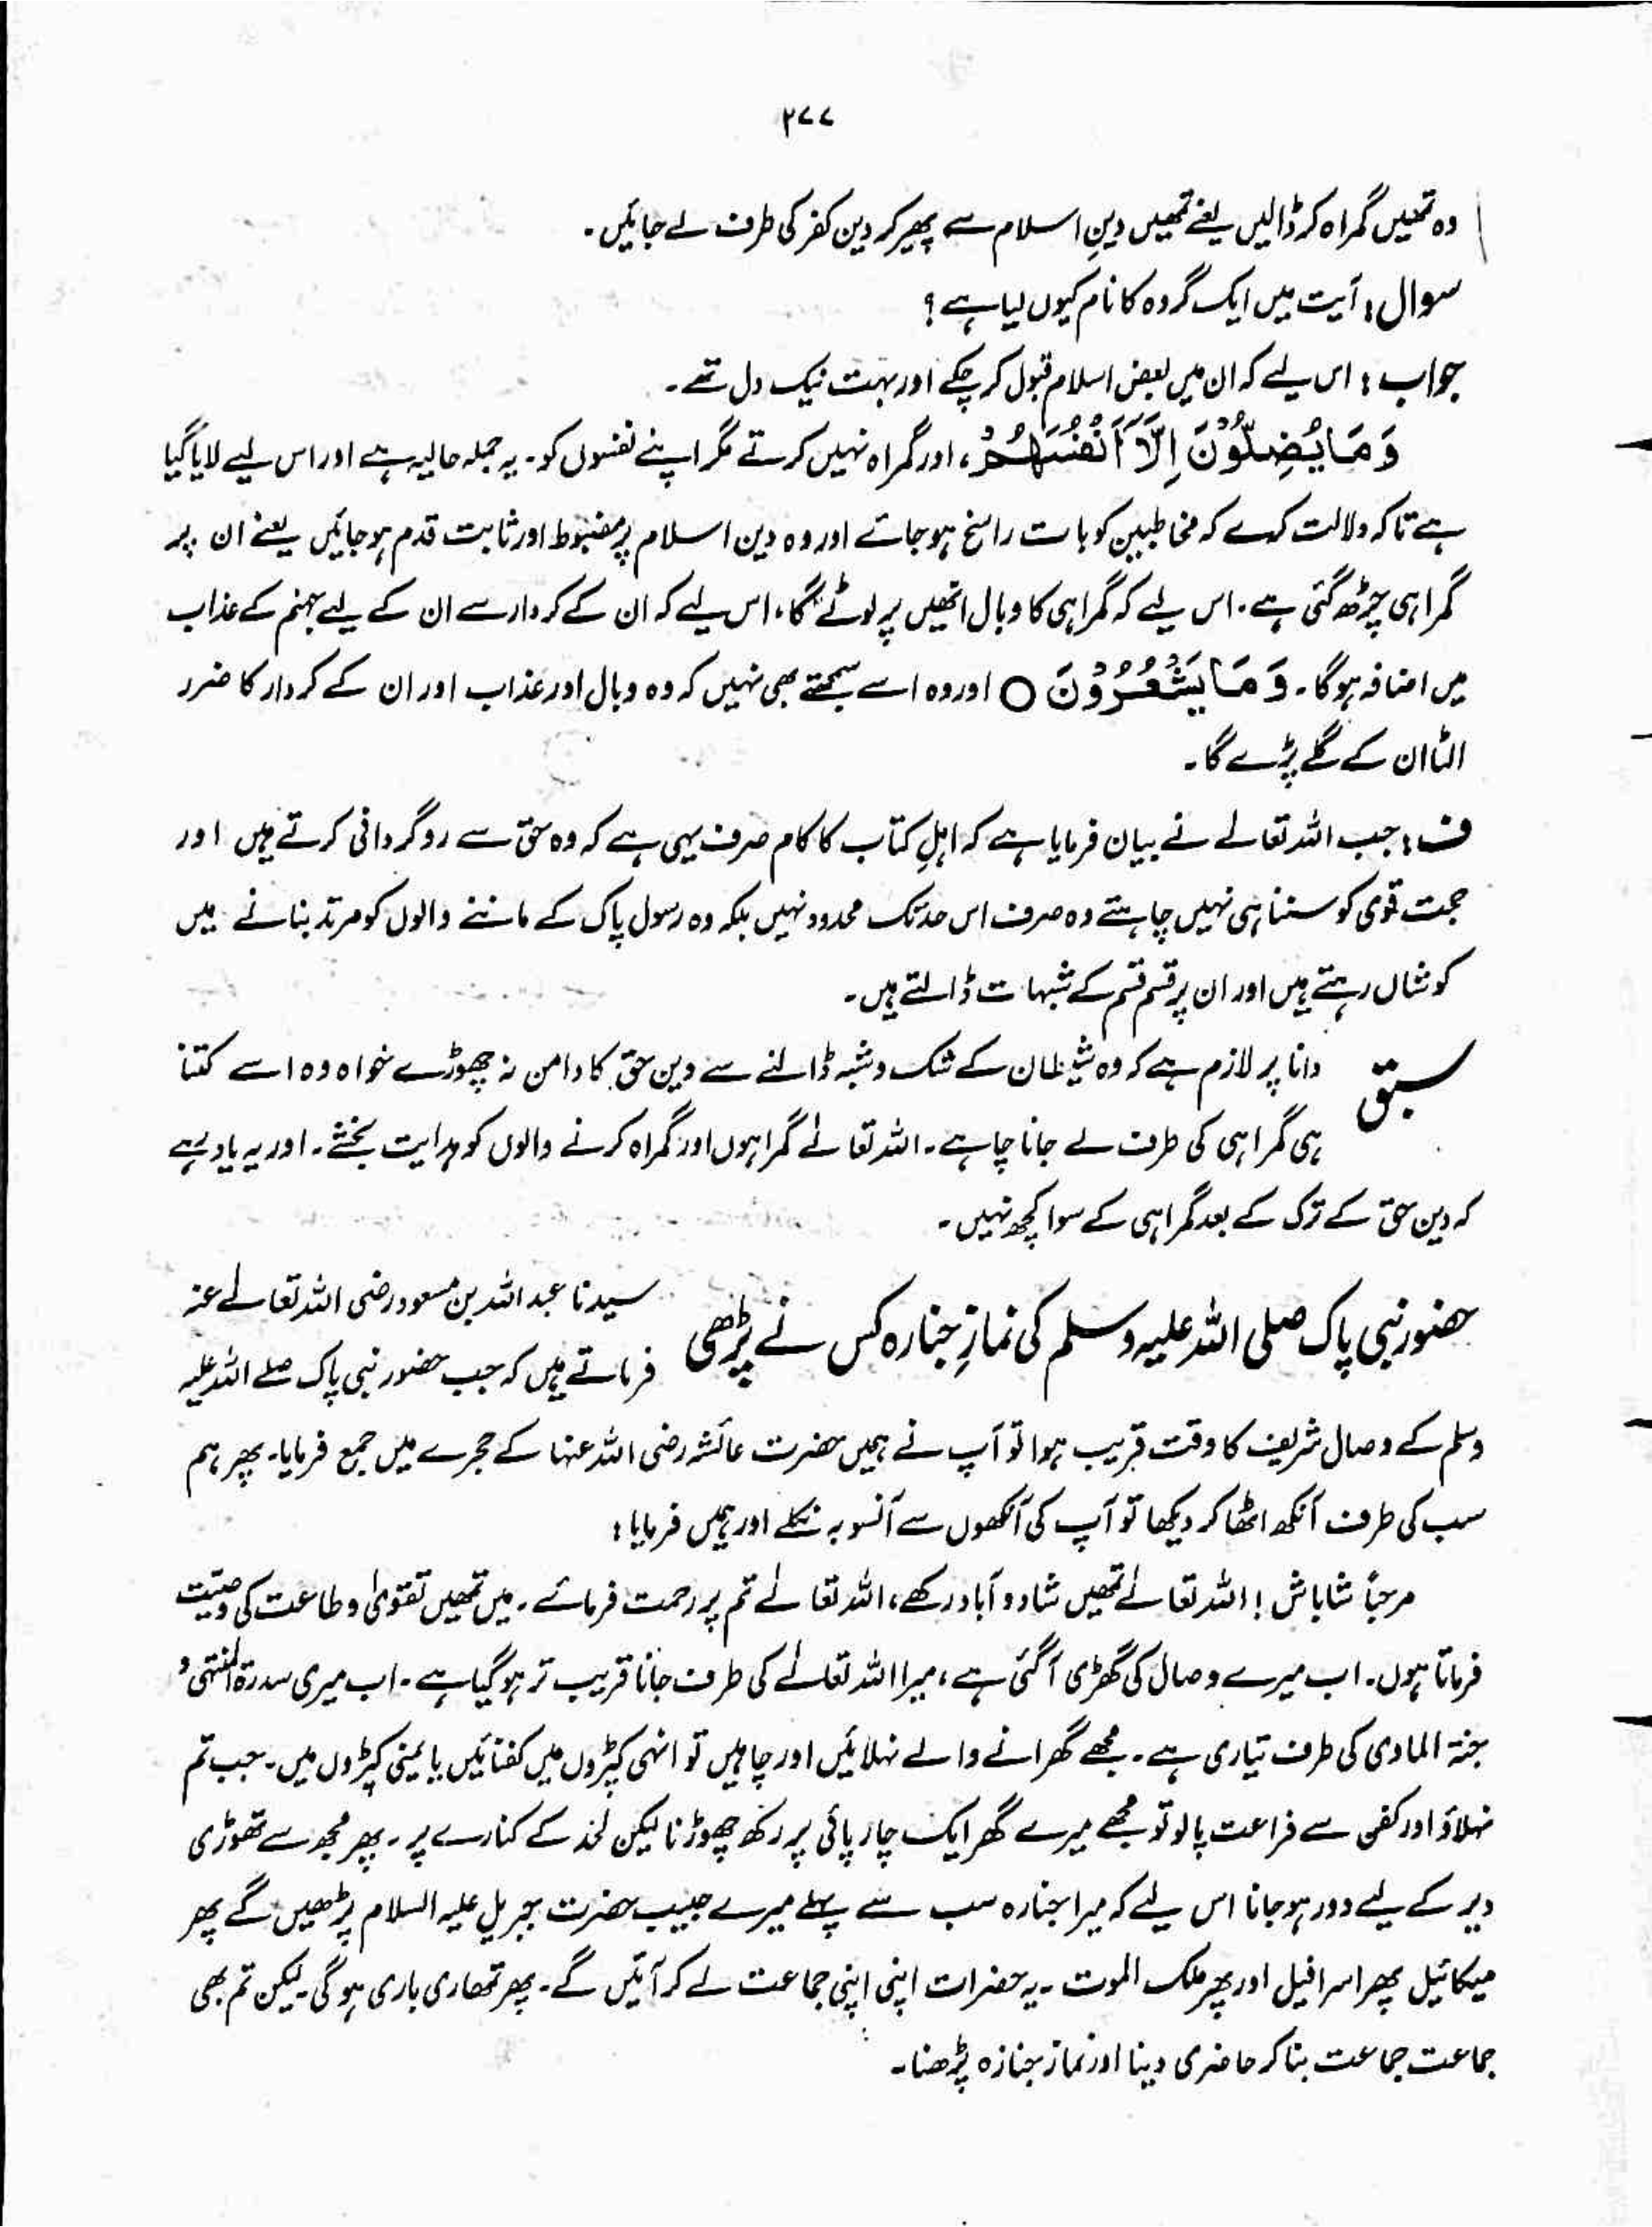 ۲۷۷
وہ تمھیں گمراہ کر ڈالیں یعنے تمھیں دینِ اسلام سے پھیر کر دین کفر کی طرف لے جائیں۔
سوال: آیت میں ایک گروہ کا نام کیوں لیا ہے؟
جواب: اس لیے کہ ان میں بعض اسلام قبول کر چکے اور بہت نیک دل تھے۔
وَمَا يُضِلُّوْنَ اِلَّاۤ اَنْفُسَهُمْ، اور گمراہ نہیں کرتے مگر اپنے نفسوں کو۔ یہ جملہ حالیہ ہے اور اس لیے لایا گیا
ہے تاکہ دلالت کرے کہ مخاطبین کو بات راسخ ہو جائے اور وہ دین اسلام پر مضبوط اور ثابت قدم ہو جائیں یعنے ان پر
گمراہی چڑھ گئی ہے۔ اس لیے کہ گمراہی کا وبال انھیں پر لوٹے گا، اس لیے کہ ان کے کردار سے ان کے لیے جہنم کے عذاب
میں اضافہ ہوگا۔ وَمَا يَشْعُرُوْنَ ○ اور وہ اسے سمجھتے بھی نہیں کہ وہ وبال اور عذاب اور ان کے کردار کا ضرر
الٹا ان کے گلے پڑے گا۔
ف: جب اللہ تعالےٰ نے بیان فرمایا ہے کہ اہلِ کتاب کا کام صرف یہی ہے کہ وہ حق سے روگردانی کرتے ہیں اور
حجت قوی کو سننا ہی نہیں چاہتے وہ صرف اس حد تک محدود نہیں بلکہ وہ رسول پاک کے ماننے والوں کو مرتد بنانے میں
کوشاں رہتے ہیں اور ان پر قسم قسم کے شبہات ڈالتے ہیں۔
سبق دانا پر لازم ہے کہ وہ شیطان کے شک و شبہ ڈالنے سے دین حق کا دامن نہ چھوڑے خواہ وہ اسے کتنا
ہی گمراہی کی طرف لے جانا چاہے۔ اللہ تعالےٰ گمراہوں اور گمراہ کرنے والوں کو ہدایت بخشے۔ اور یہ یاد رہے
کہ دین حق کے ترک کے بعد گمراہی کے سوا کچھ نہیں۔
حضور نبی پاک صلی اللہ علیہ وسلم کی نمازِ جنازہ کس نے پڑھی سیدنا عبداللہ بن مسعود رضی اللہ تعالےٰ عنہ
فرماتے ہیں کہ جب حضور نبی پاک صلے اللہ علیہ
وسلم کے وصال شریف کا وقت قریب ہوا تو آپ نے ہمیں حضرت عائشہ رضی اللہ عنہا کے حجرے میں جمع فرمایا۔ پھر ہم
سب کی طرف آنکھ اٹھا کر دیکھا تو آپ کی آنکھوں سے آنسو بہ نکلے اور ہمیں فرمایا:
مرحباً شاباش! اللہ تعالےٰ تمھیں شاد و آباد رکھے، اللہ تعالےٰ تم پر رحمت فرمائے۔ میں تمھیں تقویٰ و طاعت کی وصیّت
فرماتا ہوں۔ اب میرے وصال کی گھڑی آگئی ہے، میرا اللہ تعالےٰ کی طرف جانا قریب تر ہو گیا ہے۔ اب میری سدرۃ المنتہیٰ و
جنۃ الماویٰ کی طرف تیاری ہے۔ مجھے گھرانے والے نہلائیں اور چاہیں تو انہی کپڑوں میں کفنائیں یا یمنی کپڑوں میں۔ جب تم
نہلاؤ اور کفن سے فراغت پا لو تو مجھے میرے گھر ایک چارپائی پر رکھ چھوڑنا لیکن لحد کے کنارے پر۔ پھر مجھ سے تھوڑی
دیر کے لیے دور ہو جانا اس لیے کہ میرا جنازہ سب سے پہلے میرے حبیب حضرت جبریل علیہ السلام پڑھیں گے پھر
میکائیل پھر اسرافیل اور پھر ملک الموت۔ یہ حضرات اپنی اپنی جماعت لے کر آئیں گے۔ پھر تمھاری باری ہوگی۔ لیکن تم بھی
جماعت جماعت بنا کر حاضری دینا اور نماز جنازہ پڑھنا۔